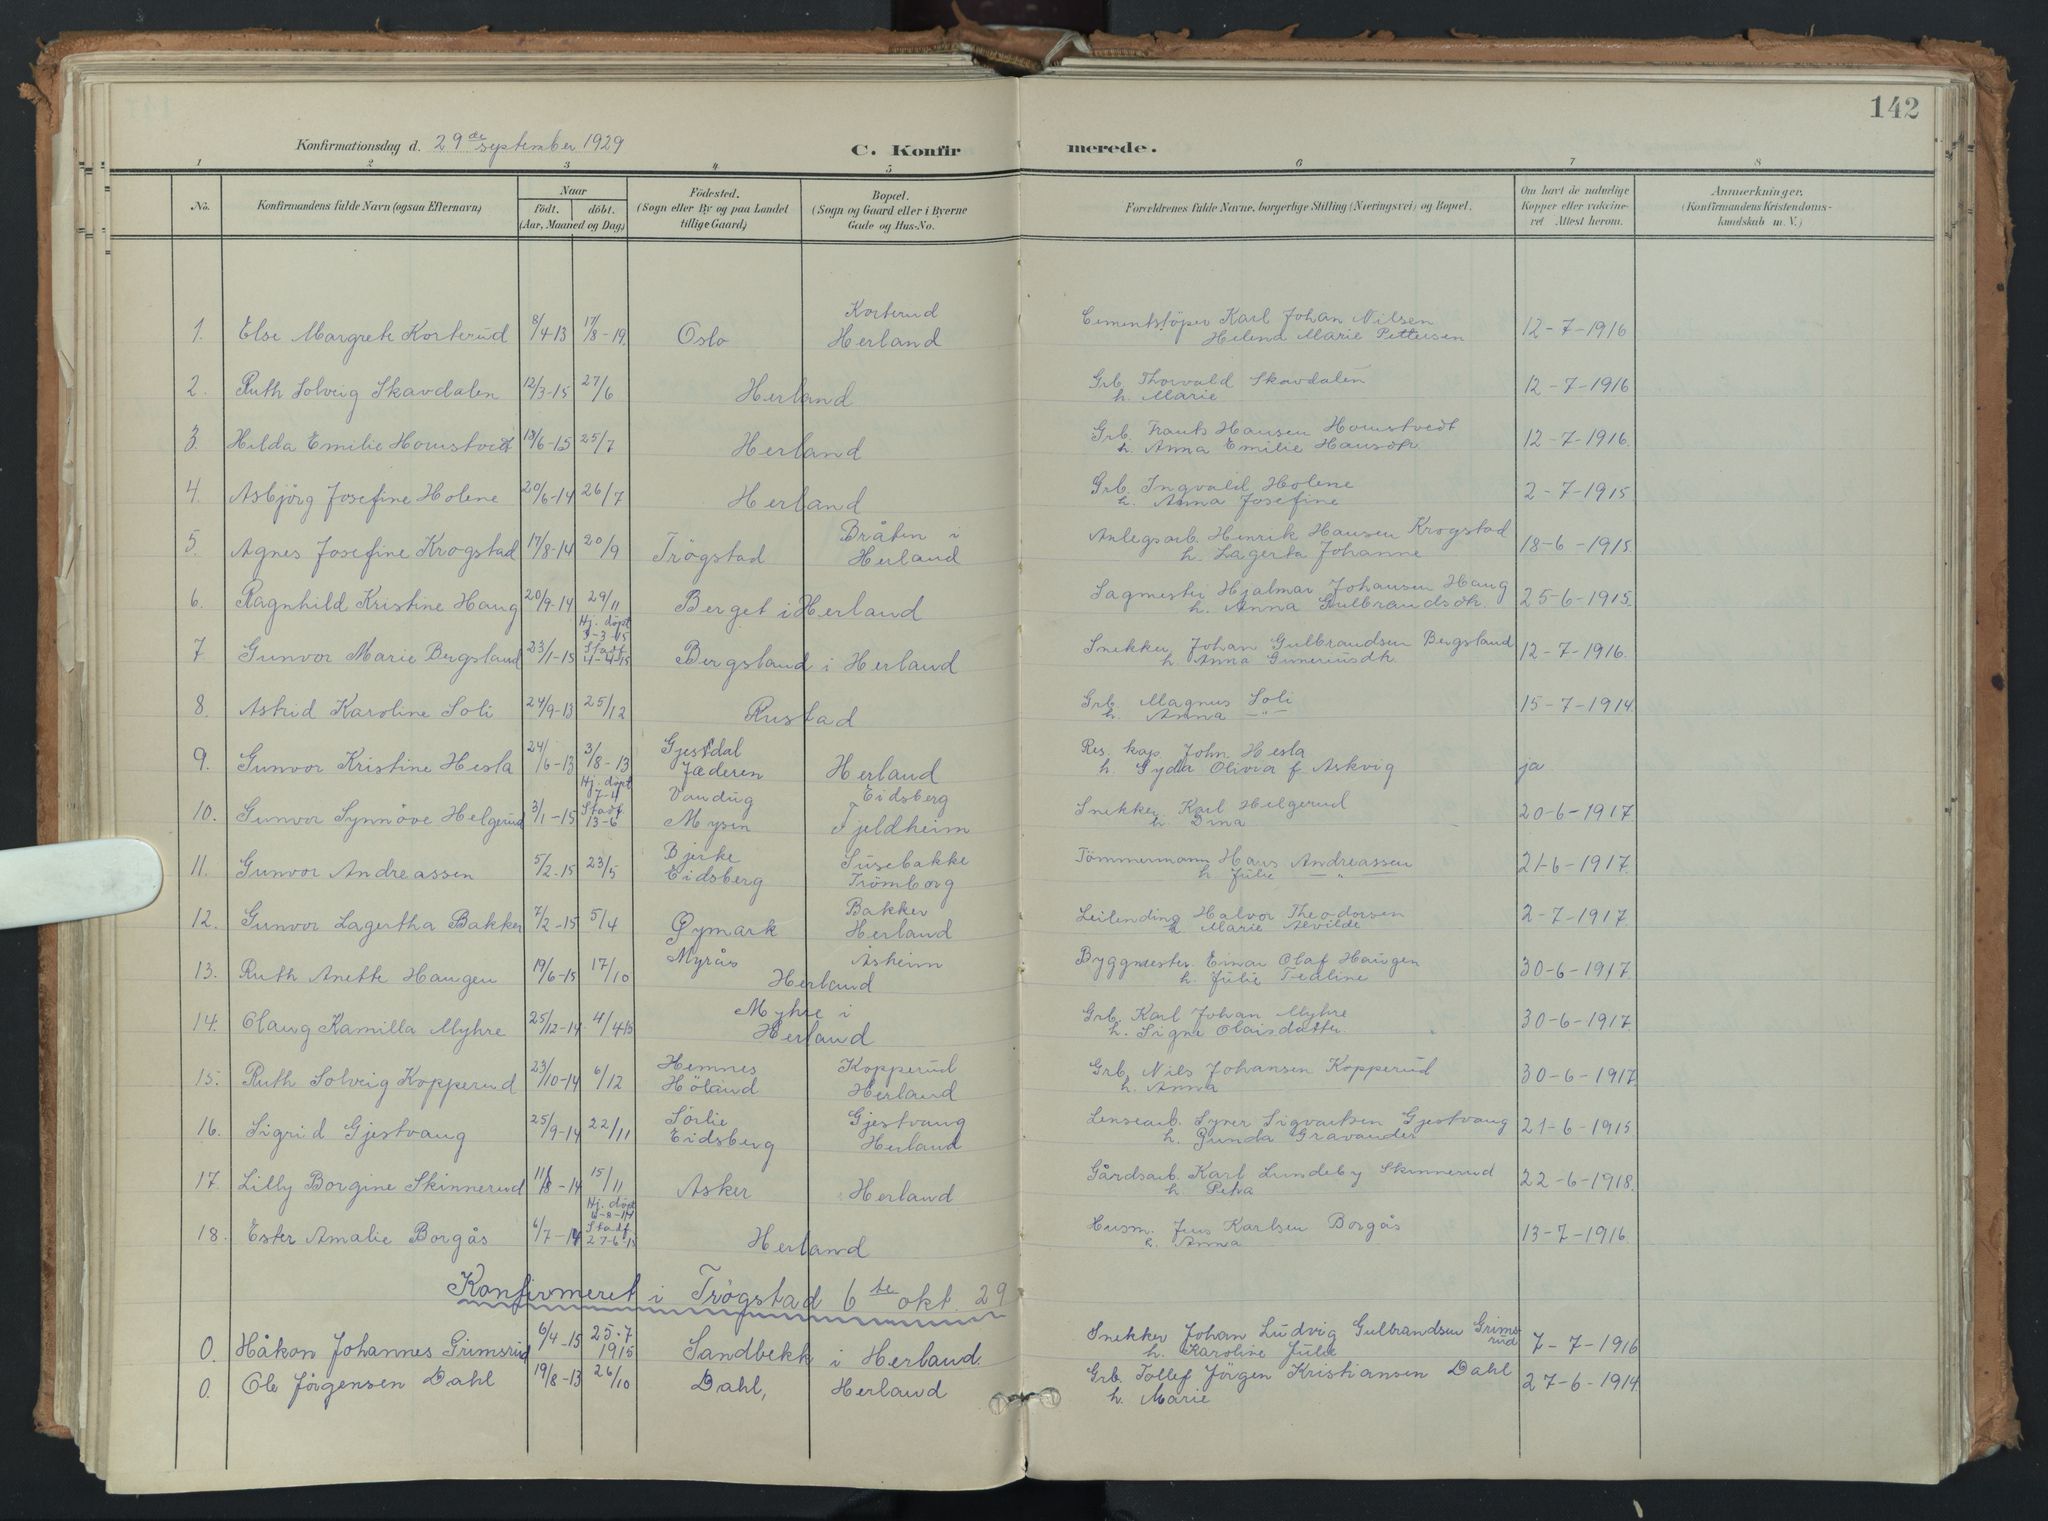 142
Konfirmationsdag d. 29de september 1929
C. Konfirmerede.
1 2 3 4 5 6 7 8
No. Konfirmandens fulde Navn (ogsaa Efternavn) Naar født. døbt. (Aar, Maaned og Dag) Fødested. (Sogn eller By og paa Landet tillige Gaard) Bopæl. (Sogn og Gaard eller i Byerne Gade og Hus-No. Forældrenes fulde Navne, borgerlige Stilling (Næringsvei) og Bopæl. Om havt de naturlige Kopper eller vaccineret. Attest herom. Anmærkninger. (Konfirmandens Kristendomskundskab m. V.)
1. Else Margrete Korterud 8/4-13 17/8-19. Oslo Korterud Herland Cementstöper Karl Johan Nilsen Helena Marie Pettersen 12-7-1916
2. Ruth Solveig Skavdalen 12/3-15 27/6 Herland Grb. Thorvald Skavdalen h. Marie 12-7-1916
3. Hilda Emilie Homstvedt 18/6-15 25/7 Herland Grb. Frants Hansen Homstvedt h. Anna Emilie Hansdtr. 12-7-1916.
4. Asbjörg Josefine Holene 20/6-14 26/7 Herland Grb. Ingvald Holene h. Anna Josefine 2-7-1915
5. Agnes Josefine Krogstad 17/8-14 20/9 Trögstad Bråten i Herland Anlegsarb. Henrik Hansen Krogstad h. Lagerta Johanne 18-6-1915
6. Ragnhild Kristine Haug 20/9-14 29/11 Berget i Herland Sagmester Hjalmar Johansen Haug h. Anna Gulbrandsdtr. 25-6-1915.
7. Gunvor Marie Bergsland 23/1-15 Hj. döpt 9-3-15 Stadf. 4-4-15 Bergsland i Herland Snekker Johan Gulbrandsen Bergsland h. Anna Guneriusdtr. 12-7-1916.
8. Astrid Karoline Soli 24/9-13 25/12 Rustad Grb. Magnus Soli h. Anna —"— 15-7-1914
9. Gunvor Kristine Hesla 24/6-13 3/8-13 Gjesdal Jæderen Herland Res. kap. John Hesla h. Gyda Olivia f. Askvig ja
10. Gunvor Synnöve Helgerud 3/1-15 Hj. döpt 7-4 Stadf. 13-6 Vandug Mysen Eidsberg Fjeldheim Snekker Karl Helgerud h. Dina 20-6-1917
11. Gunvor Andreassen 5/2-15 23/5 Bjerke Eidsberg Susebakke Trömborg Tömmermann Hans Andreassen h. Julie —"— 21-6-1917.
12. Gunvor Lagertha Bakker 7/2-15 5/4 Øymark Bakker Herland Leilending Halvor Theodorsen h. Marie Alvilde 2-7-1917.
13. Ruth Anette Haugen 19/6-15 17/10 Myrås Åsheim Herland Byggmester. Einar Olaf Haugen h. Julie Tealine 30-6-1917
14. Olaug Kamilla Myhre 25/12-14 4/4 15 Myhre i Herland Grb. Karl Johan Myhre h. Signe Olaisdatter. 30-6-1917.
15. Ruth Solveig Kopperud 23/10-14 6/12 Hemnes Höland Kopperud Herland Grb. Nils Johansen Kopperud h. Anna 30-6-1917
16. Sigrid Gjestvang 25/9-14 22/11 Sörlie Eidsberg Gjestvang Herland Lensearb. Syver Sigvartsen Gjestvang h. Gunda Gravander 21-6-1915
17. Lilly Borgine Skinnerud 11/8-14 15/11 Asker Herland Gårdsarb. Karl Lundeby Skinnerud h. Petra 22-6-1918.
18. Ester Amalie Borgås 6/7-14 Hj. döpt 6-8-14 Stadf. 27-6-15 Herland Husm. Jens Karlsen Borgås h. Anna 13-7-1916.
Konfirmeret i Trögstad 6te okt. 29
0. Håkon Johannes Grimsrud 6/4-15 25-7 1915 Sandbekk i Herland. Snekker Johan Ludvig Gulbrandsen Grimsrud h. Karoline Julie 7-7-1916
0. Ole Jörgensen Dahl 19/8-13 26/10 Dahl, Herland Grb. Tollef Jörgen Kristiansen Dahl h. Marie 27-6-1914.